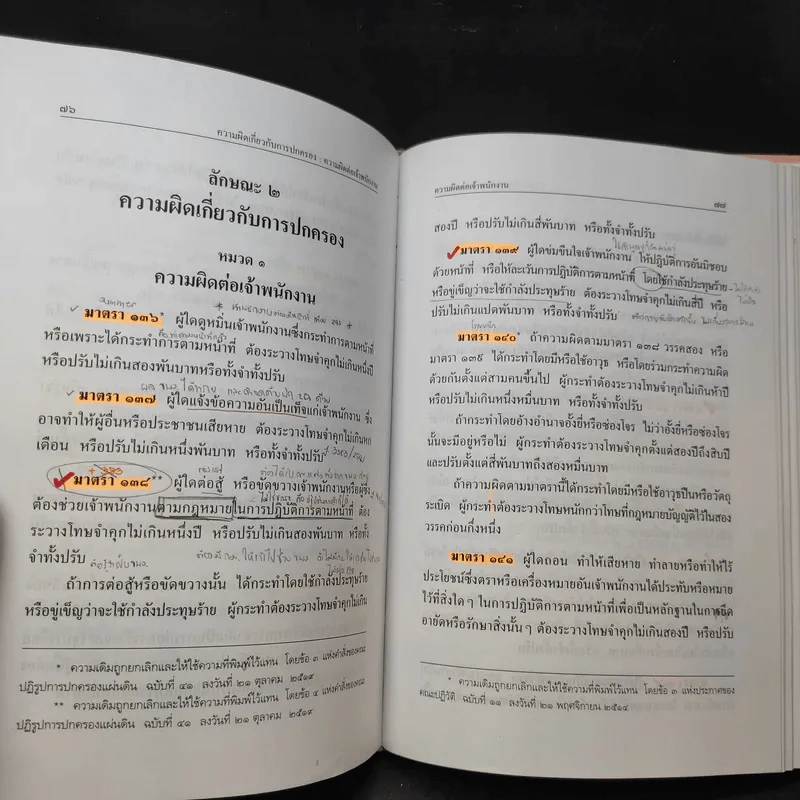 ๗๖
ความผิดเกี่ยวกับการปกครอง : ความผิดต่อเจ้าพนักงาน
ลักษณะ ๒
ความผิดเกี่ยวกับการปกครอง
หมวด ๑
ความผิดต่อเจ้าพนักงาน
มาตรา ๑๓๖* ผู้ใดดูหมิ่นเจ้าพนักงานซึ่งกระทำการตามหน้าที่
หรือเพราะได้กระทำการตามหน้าที่ ต้องระวางโทษจำคุกไม่เกินหนึ่งปี
หรือปรับไม่เกินสองพันบาทหรือทั้งจำทั้งปรับ
มาตรา ๑๓๗ ผู้ใดแจ้งข้อความอันเป็นเท็จแก่เจ้าพนักงาน ซึ่ง
อาจทำให้ผู้อื่นหรือประชาชนเสียหาย ต้องระวางโทษจำคุกไม่เกินหก
เดือน หรือปรับไม่เกินหนึ่งพันบาท หรือทั้งจำทั้งปรับ
มาตรา ๑๓๘** ผู้ใดต่อสู้ หรือขัดขวางเจ้าพนักงานหรือผู้ซึ่ง
ต้องช่วยเจ้าพนักงานตามกฎหมายในการปฏิบัติการตามหน้าที่ ต้อง
ระวางโทษจำคุกไม่เกินหนึ่งปี หรือปรับไม่เกินสองพันบาท หรือทั้ง
จำทั้งปรับ
ถ้าการต่อสู้หรือขัดขวางนั้น ได้กระทำโดยใช้กำลังประทุษร้าย
หรือขู่เข็ญว่าจะใช้กำลังประทุษร้าย ผู้กระทำต้องระวางโทษจำคุกไม่เกิน
* ความเดิมถูกยกเลิกและให้ใช้ความที่พิมพ์ไว้แทน โดยข้อ ๓ แห่งคำสั่งของคณะ
ปฏิรูปการปกครองแผ่นดิน ฉบับที่ ๔๑ ลงวันที่ ๒๑ ตุลาคม ๒๕๑๙
** ความเดิมถูกยกเลิกและให้ใช้ความที่พิมพ์ไว้แทน โดยข้อ ๔ แห่งคำสั่งของคณะ
ปฏิรูปการปกครองแผ่นดิน ฉบับที่ ๔๑ ลงวันที่ ๒๑ ตุลาคม ๒๕๑๙
ความผิดต่อเจ้าพนักงาน
๗๗
สองปี หรือปรับไม่เกินสี่พันบาท หรือทั้งจำทั้งปรับ
มาตรา ๑๓๙ ผู้ใดข่มขืนใจเจ้าพนักงาน ให้ปฏิบัติการอันมิชอบ
ด้วยหน้าที่ หรือให้ละเว้นการปฏิบัติการตามหน้าที่ โดยใช้กำลังประทุษร้าย
หรือขู่เข็ญว่าจะใช้กำลังประทุษร้าย ต้องระวางโทษจำคุกไม่เกินสี่ปี หรือ
ปรับไม่เกินแปดพันบาท หรือทั้งจำทั้งปรับ
มาตรา ๑๔๐* ถ้าความผิดตามมาตรา ๑๓๘ วรรคสอง หรือ
มาตรา ๑๓๙ ได้กระทำโดยมีหรือใช้อาวุธ หรือโดยร่วมกระทำความผิด
ด้วยกันตั้งแต่สามคนขึ้นไป ผู้กระทำต้องระวางโทษจำคุกไม่เกินห้าปี
หรือปรับไม่เกินหนึ่งหมื่นบาท หรือทั้งจำทั้งปรับ
ถ้ากระทำโดยอ้างอำนาจอั้งยี่หรือซ่องโจร ไม่ว่าอั้งยี่หรือซ่องโจร
นั้นจะมีอยู่หรือไม่ ผู้กระทำต้องระวางโทษจำคุกตั้งแต่หนึ่งปีถึงสิบปี
และปรับตั้งแต่สี่พันบาทถึงสองหมื่นบาท
ถ้าความผิดตามมาตรานี้ได้กระทำโดยมีหรือใช้อาวุธปืนหรือวัตถุ
ระเบิด ผู้กระทำต้องระวางโทษหนักกว่าโทษที่กฎหมายบัญญัติไว้ในสอง
วรรคก่อนกึ่งหนึ่ง
มาตรา ๑๔๑ ผู้ใดถอน ทำให้เสียหาย ทำลายหรือทำให้ไร้
ประโยชน์ซึ่งตราหรือเครื่องหมายอันเจ้าพนักงานได้ประทับหรือหมาย
ไว้ที่สิ่งใด ๆ ในการปฏิบัติการตามหน้าที่เพื่อเป็นหลักฐานในการยึด
อายัดหรือรักษาสิ่งนั้น ๆ ต้องระวางโทษจำคุกไม่เกินสองปี หรือปรับ
* ความเดิมถูกยกเลิกและให้ใช้ความที่พิมพ์ไว้แทน โดยข้อ ๓ แห่งประกาศของ
คณะปฏิวัติ ฉบับที่ ๑๑ ลงวันที่ ๒๑ พฤศจิกายน ๒๕๑๔